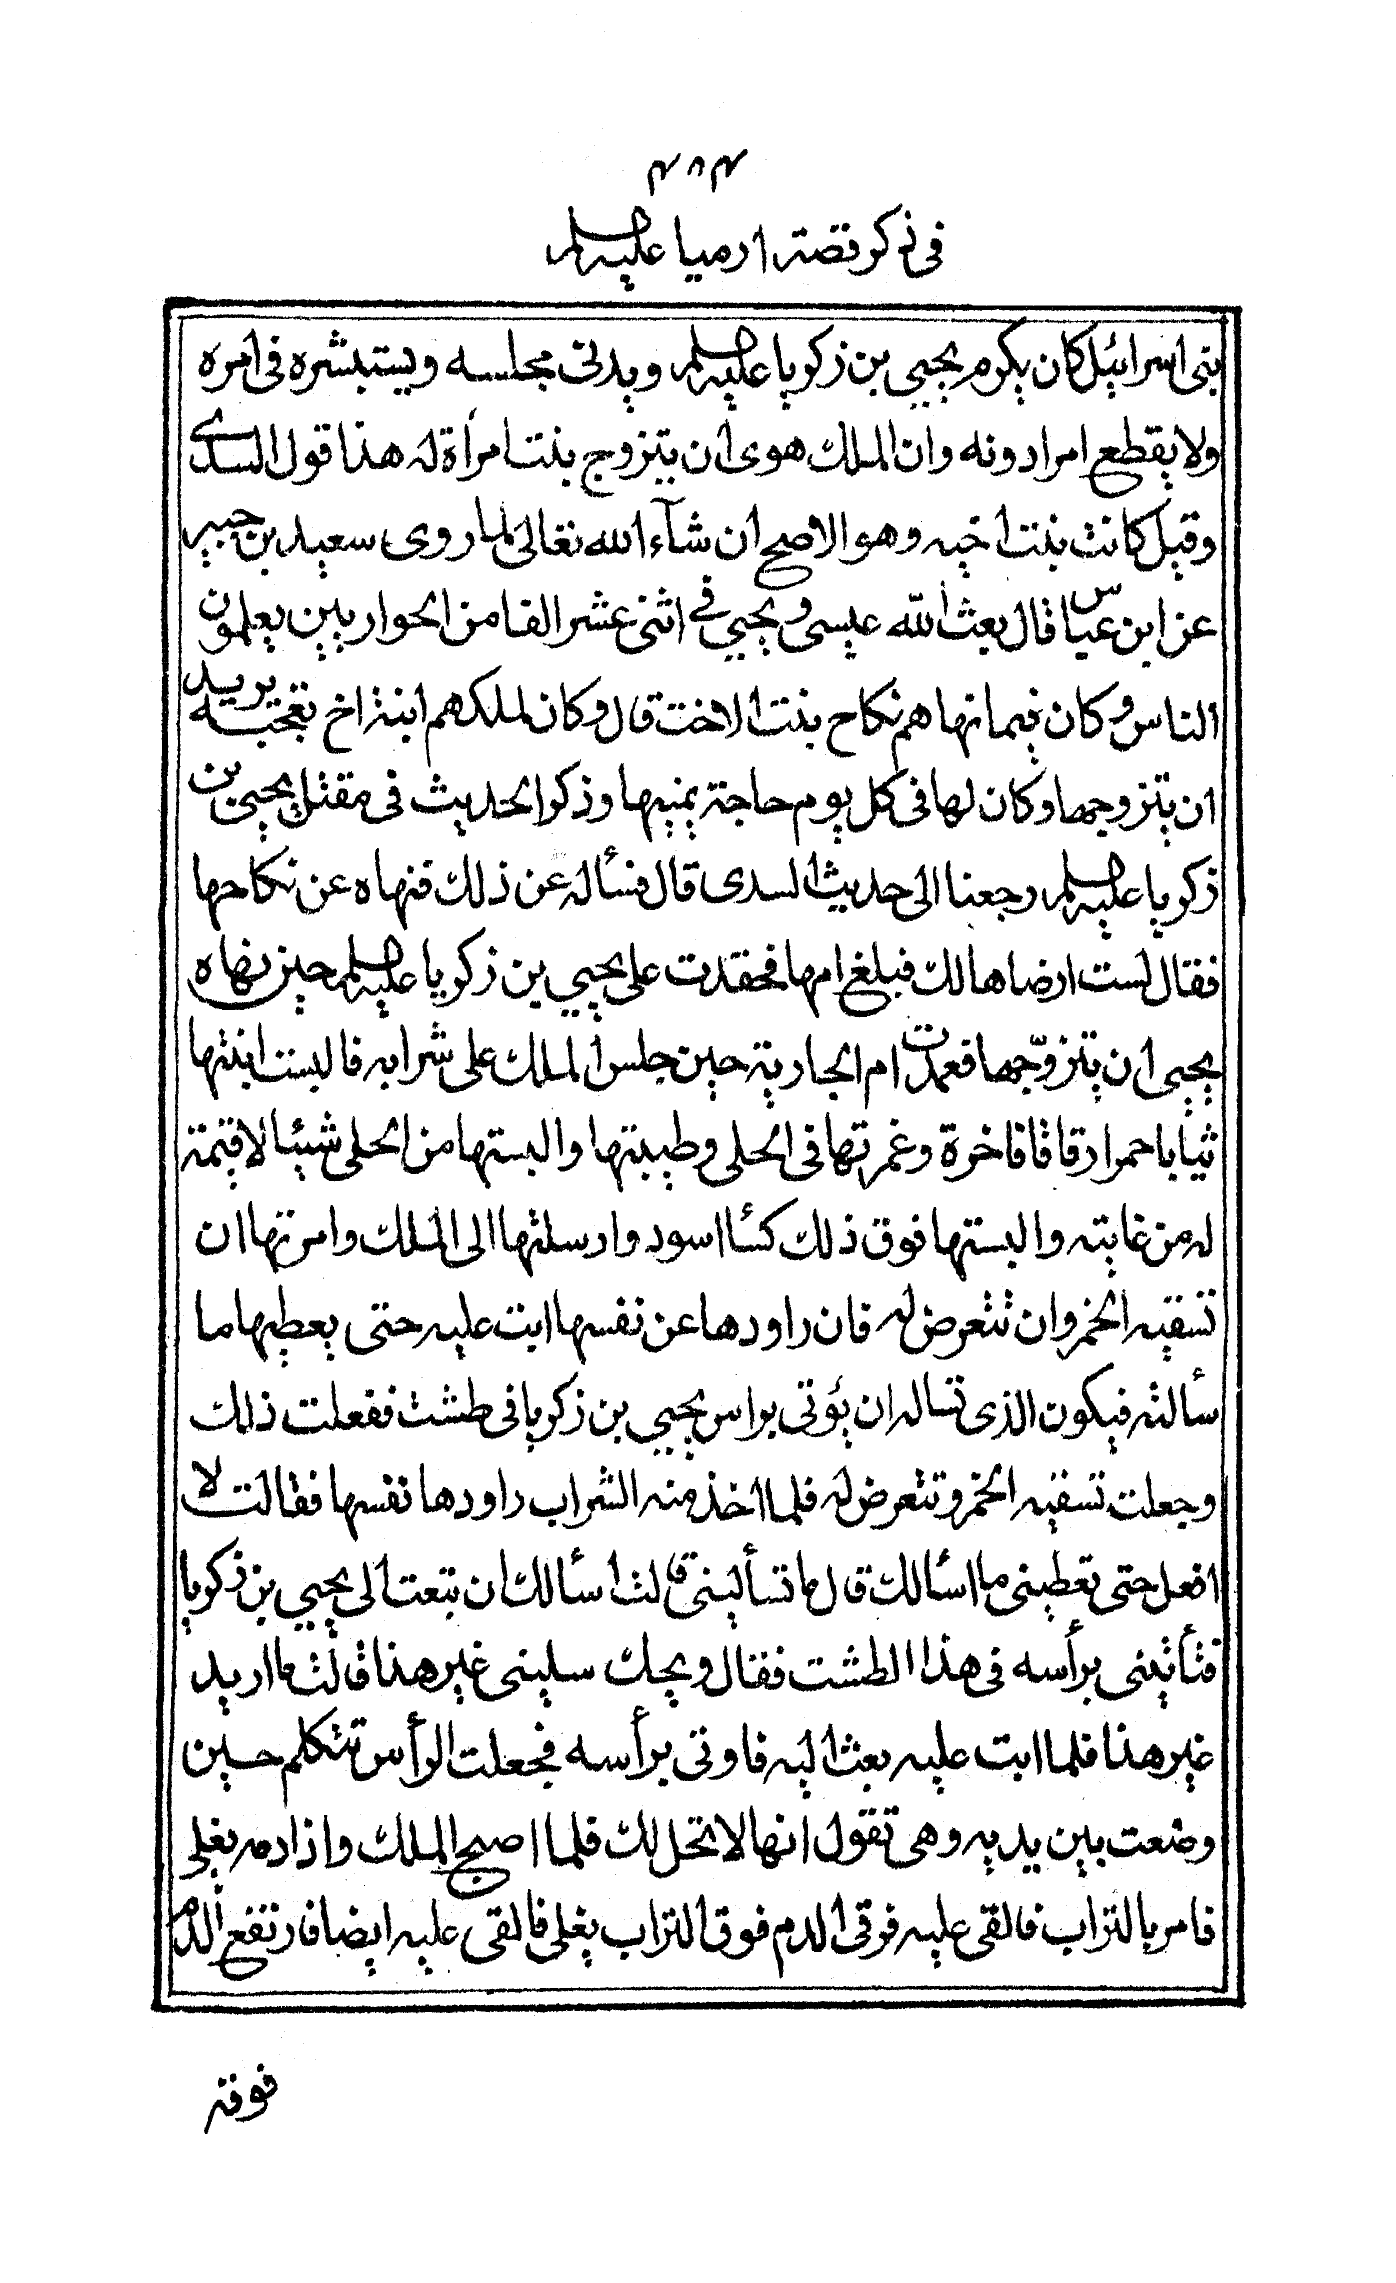 ٤٨٤
في ذكر قصة ارميا عليه السلم
بني اسرائيل كان يكرم يحيى بن زكريا عليه السلم ويدني مجلسه ويستبشره في امره
ولا يقطع امرا دونه وان الملك هوى ان يتزوج بنت امرأة له هذا قول السدى
وقيل كانت بنت اخيه وهو الاصح ان شآء الله تعالى لما روى سعيد بن جبير
عن ابن عباس قال بعث الله عيسى ويحيى في اثنى عشر الفا من الحواريين يعلمون
الناس وكان فيما نهاهم نكاح بنت الاخت قال وكان لملكهم ابنة اخ تعجبه يريد
ان يتزوجها وكان لها في كل يوم حاجة يمنيها وذكر الحديث في مقتل يحيى بن
زكريا عليه السلم رجعنا الى حديث السدى قال فسأله عن ذلك فنهاه عن نكاحها
فقال لست ارضاها لك فبلغ امها فحقدت على يحيى بن زكريا عليه السلم حين نهاه
يحيى ان يتزوّجها فعمدت ام الجارية حين جلس الملك على شرابه فالبست ابنتها
ثيابا حمرا رقاقا فاخرة وغمرتها في الحلى وطيبتها والبستها من الحلى شيئا لا قيمة
له من غايته والبستها فوق ذلك كسًا اسود وارسلتها الى الملك وامرتها ان
تسقيه الخمر وان تتعرض له فان راودها عن نفسها ابت عليه حتى يعطيها ما
سألته فيكون الذى تساله ان يؤتى براس يحيى بن زكريا في طشت ففعلت ذلك
وجعلت تسقيه الخمر وتتعرض له فلما اخذ منه الشراب راودها نفسها فقالت لا
افعل حتى تعطينى ما اسألك قال ما تسألينى قالت اسألك ان تبعث الى يحيى بن زكريا
فتأتينى برأسه في هذا الطشت فقال ويحك سلينى غير هذا قالت ما اريد
غير هذا فلما ابت عليه بعث اليه فاوتى برأسه فجعلت الرأس تتكلم حين
وضعت بين يديه وهى تقول انها لا تحل لك فلما اصبح الملك واذا دمه يغلى
فامر بالتراب فالقى عليه فرقى الدم فوق التراب يغلى فالقى عليه ايضا فارتفع الدم
فوقه